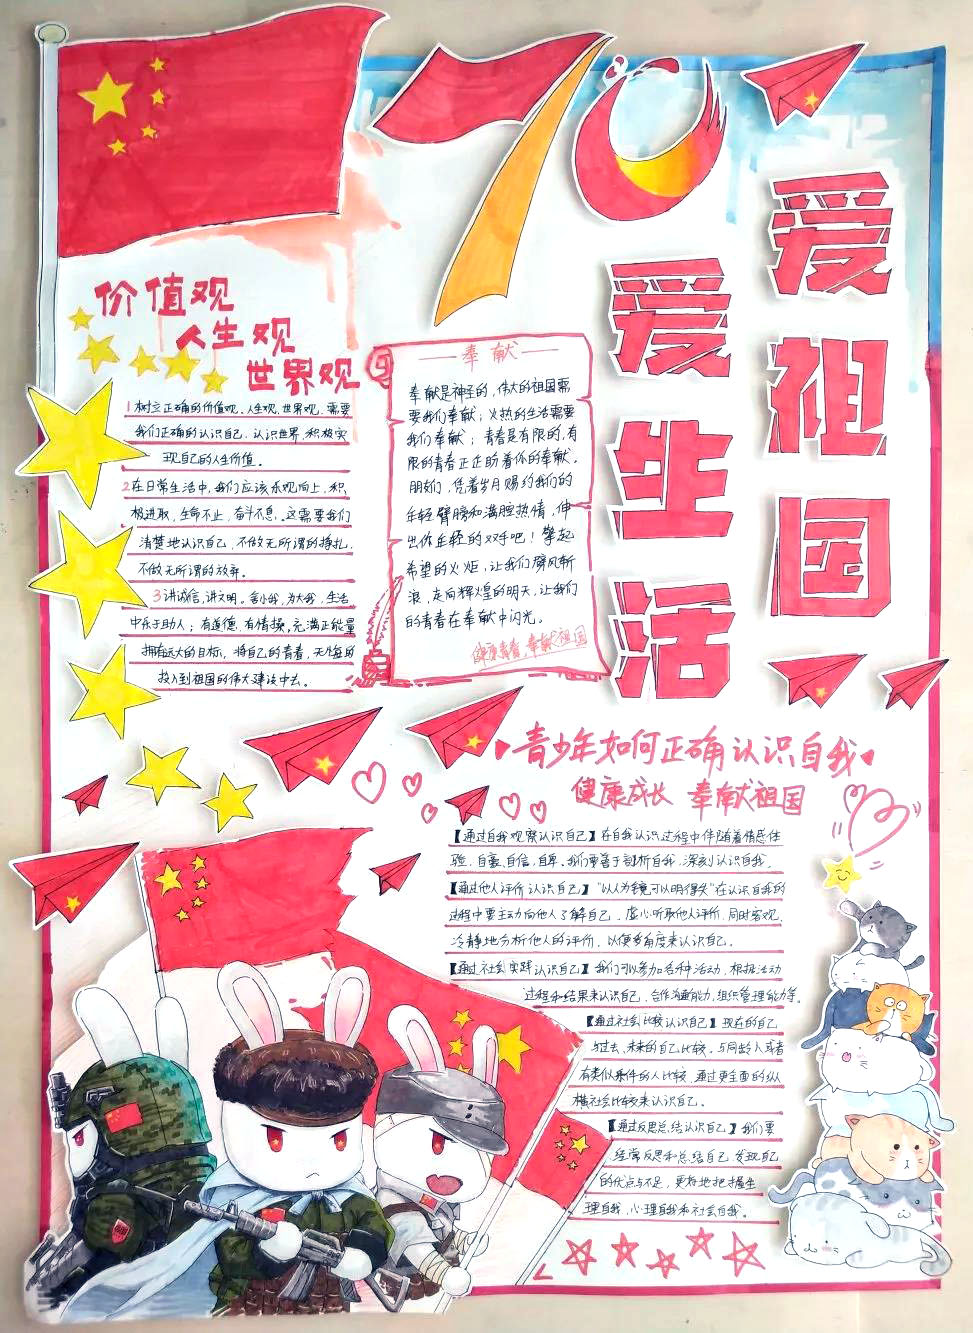 70
爱祖国
爱生活
价值观
人生观
世界观
1树立正确的价值观、人生观、世界观,需要
我们正确的认识自己,认识世界,积极实
现自己的人生价值。
2在日常生活中,我们应该乐观向上,积
极进取,生命不止,奋斗不息。这需要我们
清楚地认识自己,不做无所谓的挣扎,
不做无所谓的放弃。
3讲诚信,讲文明。舍小我,为大我,生活
中乐于助人;有道德,有情操,充满正能量
拥有远大的目标,将自己的青春,无悔的
投入到祖国的伟大建设中去。
奉献
奉献是神圣的,伟大的祖国需
要我们奉献;火热的生活需要
我们奉献;青春是有限的,有
限的青春正正盼着你的奉献。
朋友们,凭着岁月赐给我们的
年轻臂膀和满腔热情,伸
出你年轻的双手吧!擎起
希望的火炬,让我们劈风斩
浪,走向辉煌的明天,让我们
的青春在奉献中闪光。
健康青春,奉献祖国
青少年如何正确认识自我
健康成长 奉献祖国
【通过自我观察认识自己】在自我认识过程中伴随着情感体
验,自豪、自信、自卑。我们要善于剖析自我,深刻认识自我。
【通过他人评价认识自己】“以人为镜可以明得失”在认识自我的
过程中要主动向他人了解自己,虚心听取他人评价,同时客观、
冷静地分析他人的评价,以便多角度来认识自己。
【通过社会实践认识自己】我们可以参加各种活动,根据活动
过程和结果来认识自己,合作沟通能力,组织管理能力等。
【通过社会比较认识自己】现在的自己
与过去、未来的自己比较。与同龄人或者
有类似条件的人比较,通过更全面的纵
横社会比较来认识自己。
【通过反思总结认识自己】我们要
经常反思和总结自己,发现自己
的优点与不足,更好地把握生
理自我,心理自我和社会自我。